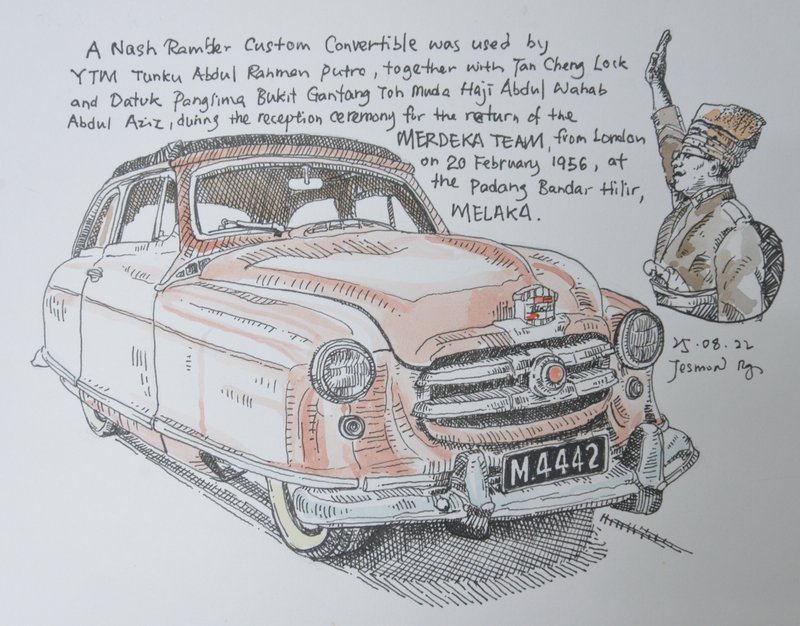 A Nash Rambler Custom Convertible was used by
YTM Tunku Abdul Rahman Putra, together with Tan Cheng Lock
and Datuk Panglima Bukit Gantang Toh Muda Haji Abdul Wahab
Abdul Aziz, during the reception ceremony for the return of the
MERDEKA TEAM, from London
on 20 February 1956, at
the Padang Bandar Hilir,
MELAKA.
25.08.22
Jesmon
M.4442